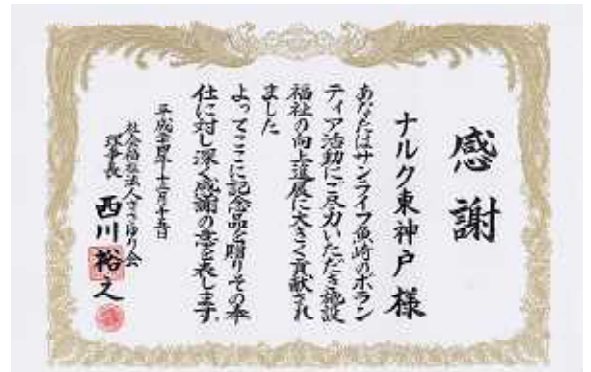 感謝
ナルク東神戸 様
あなたはサンライフ魚崎のボラン
ティア活動にご尽力いただき施設
福祉の向上進展に大きく貢献され
ました
よってここに記念品を贈りその奉
仕に対し深く感謝の意を表します
平成二十四年十二月十五日
社会福祉法人ささゆり会
理事長 西川裕之